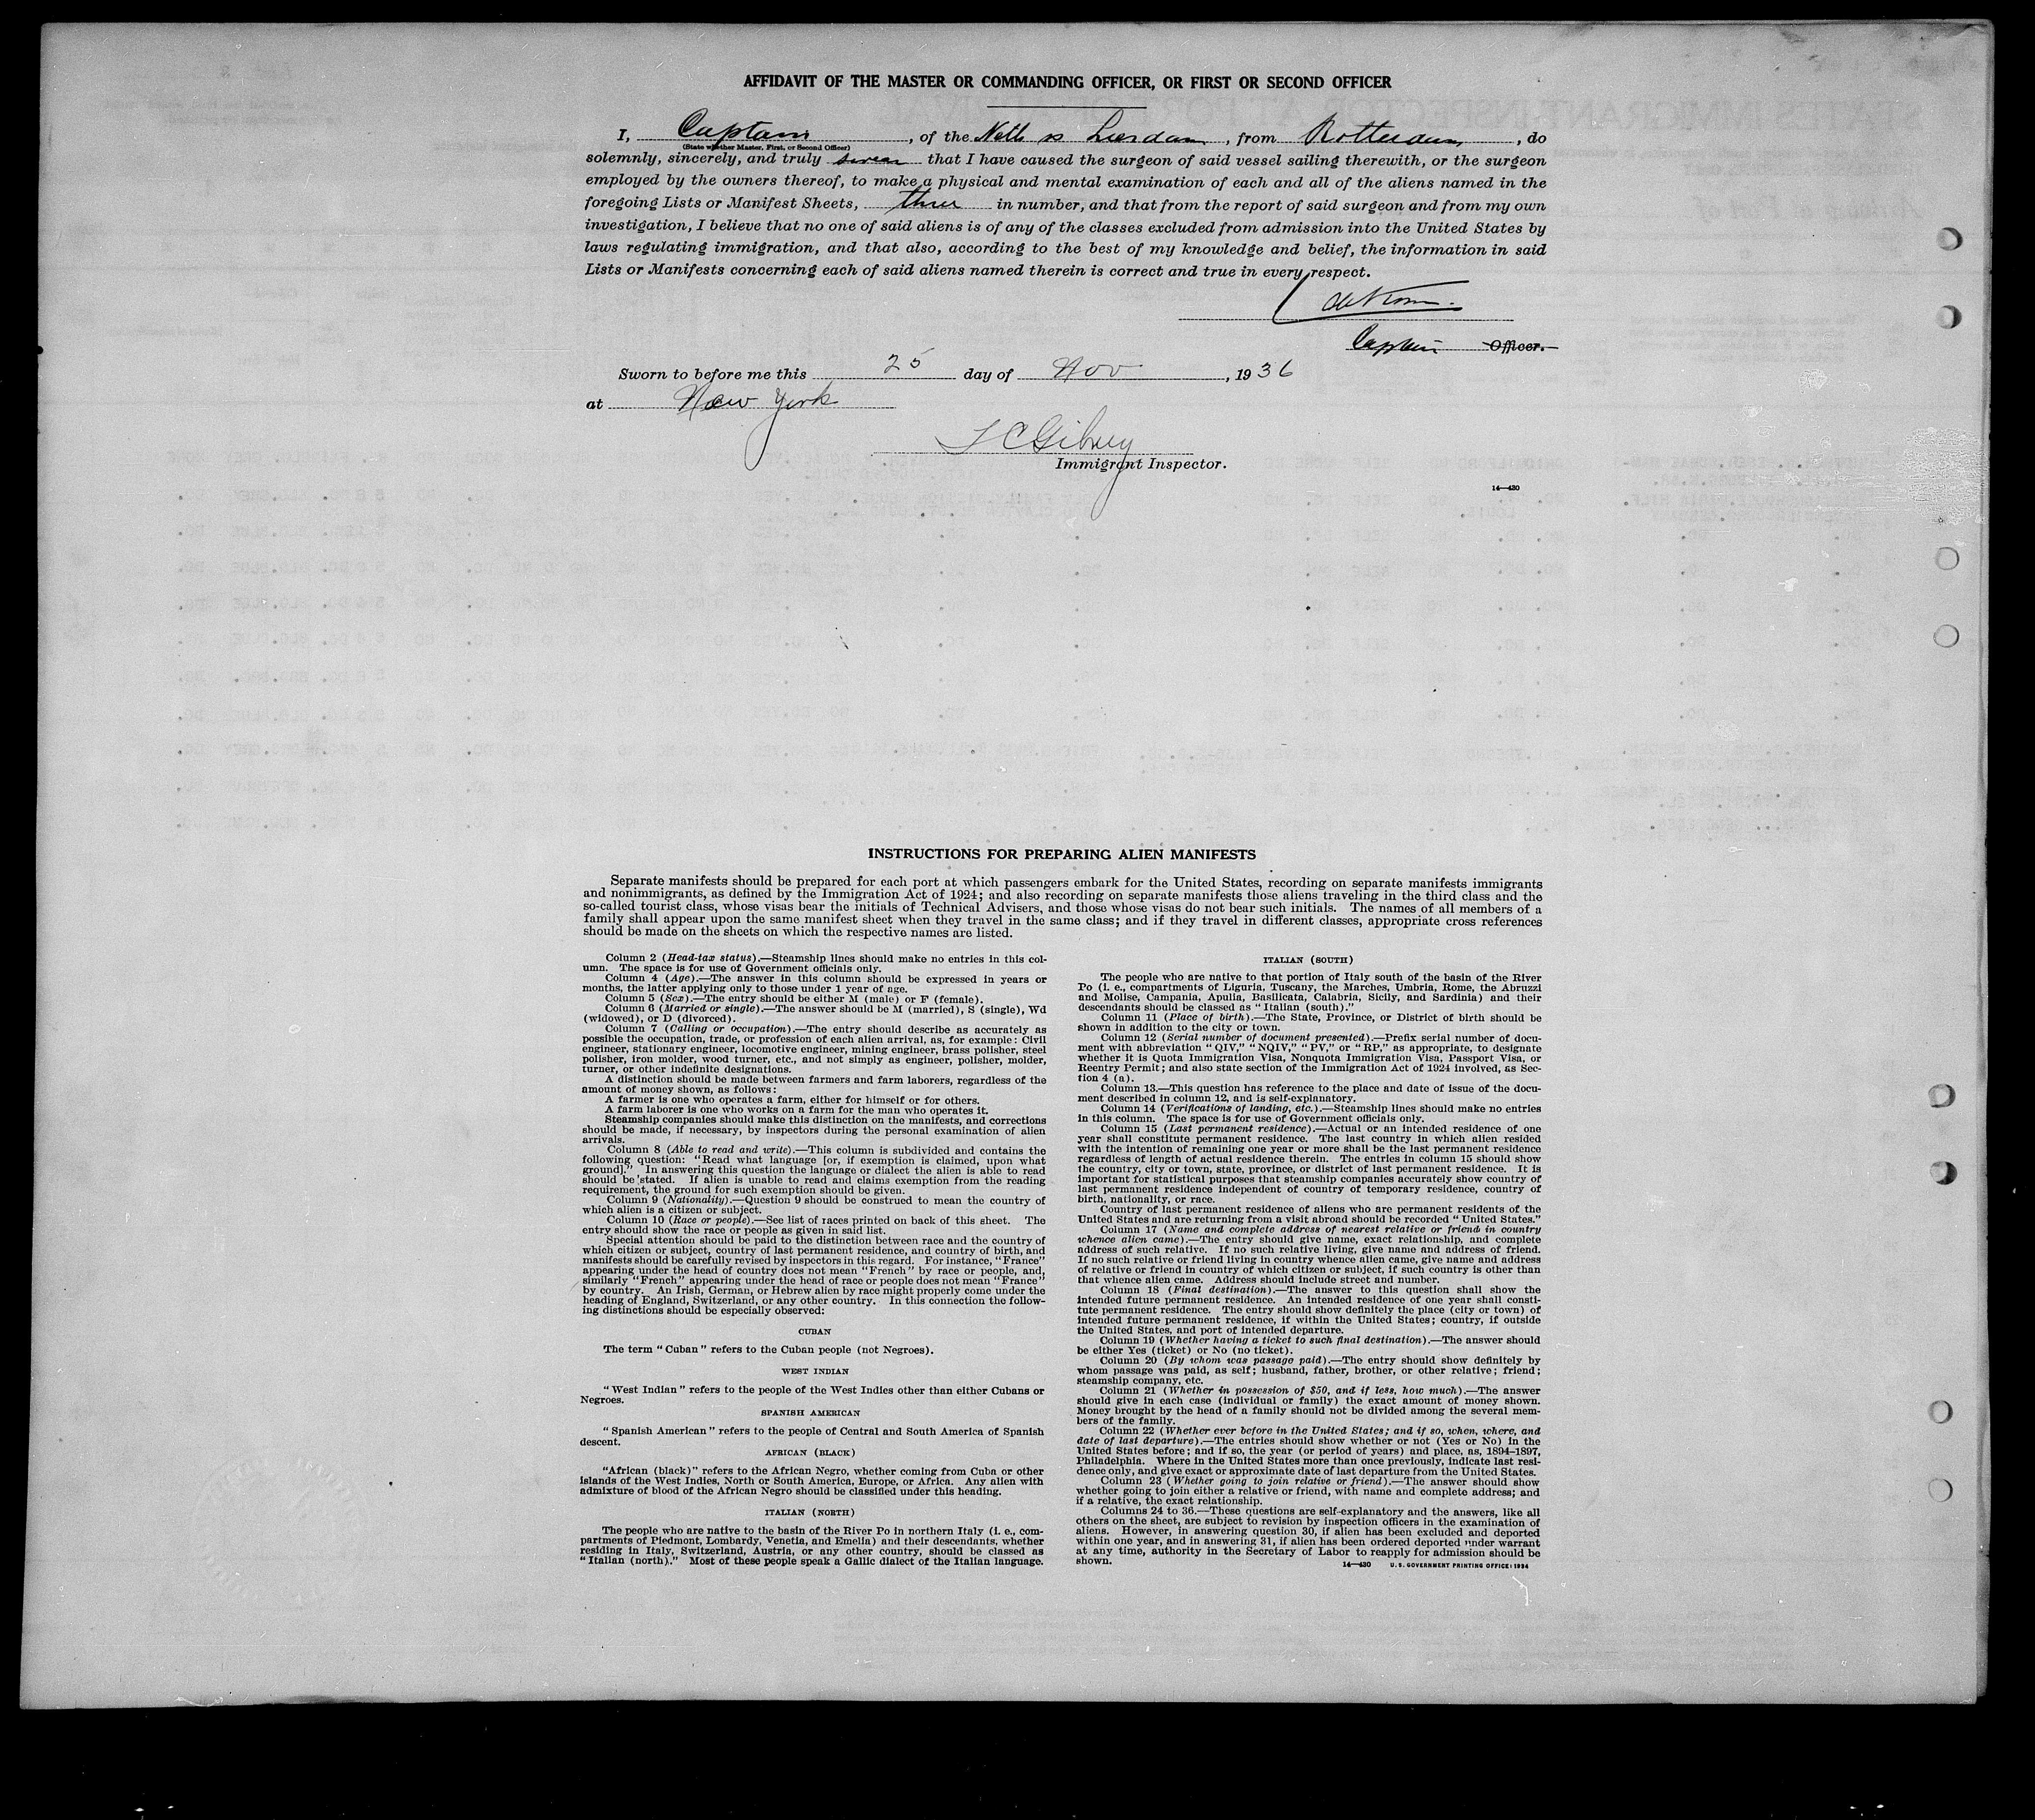 AFFIDAVIT OF THE MASTER OR COMMANDING OFFICER, OR FIRST OR SECOND OFFICER
I, Captain, of the Neth ss Leerdam, from Rotterdam, do
(State whether Master, First, or Second Officer)
solemnly, sincerely, and truly swear that I have caused the surgeon of said vessel sailing therewith, or the surgeon
employed by the owners thereof, to make a physical and mental examination of each and all of the aliens named in the
foregoing Lists or Manifest Sheets, three in number, and that from the report of said surgeon and from my own
investigation, I believe that no one of said aliens is of any of the classes excluded from admission into the United States by
laws regulating immigration, and that also, according to the best of my knowledge and belief, the information in said
Lists or Manifests concerning each of said aliens named therein is correct and true in every respect.
Captain Officer.
Sworn to before me this 25 day of Nov, 1936
at New York
Immigrant Inspector.
14—430
INSTRUCTIONS FOR PREPARING ALIEN MANIFESTS
Separate manifests should be prepared for each port at which passengers embark for the United States, recording on separate manifests immigrants
and nonimmigrants, as defined by the Immigration Act of 1924; and also recording on separate manifests those aliens traveling in the third class and the
so-called tourist class, whose visas bear the initials of Technical Advisers, and those whose visas do not bear such initials. The names of all members of a
family shall appear upon the same manifest sheet when they travel in the same class; and if they travel in different classes, appropriate cross references
should be made on the sheets on which the respective names are listed.
Column 2 (Head-tax status).—Steamship lines should make no entries in this col-
umn. The space is for use of Government officials only.
Column 4 (Age).—The answer in this column should be expressed in years or
months, the latter applying only to those under 1 year of age.
Column 5 (Sex).—The entry should be either M (male) or F (female).
Column 6 (Married or single).—The answer should be M (married), S (single), Wd
(widowed), or D (divorced).
Column 7 (Calling or occupation).—The entry should describe as accurately as
possible the occupation, trade, or profession of each alien arrival, as, for example: Civil
engineer, stationary engineer, locomotive engineer, mining engineer, brass polisher, steel
polisher, iron molder, wood turner, etc., and not simply as engineer, polisher, molder,
turner, or other indefinite designations.
A distinction should be made between farmers and farm laborers, regardless of the
amount of money shown, as follows:
A farmer is one who operates a farm, either for himself or for others.
A farm laborer is one who works on a farm for the man who operates it.
Steamship companies should make this distinction on the manifests, and corrections
should be made, if necessary, by inspectors during the personal examination of alien
arrivals.
Column 8 (Able to read and write).—This column is subdivided and contains the
following question: "Read what language [or, if exemption is claimed, upon what
ground]." In answering this question the language or dialect the alien is able to read
should be stated. If alien is unable to read and claims exemption from the reading
requirement, the ground for such exemption should be given.
Column 9 (Nationality).—Question 9 should be construed to mean the country of
which alien is a citizen or subject.
Column 10 (Race or people).—See list of races printed on back of this sheet. The
entry should show the race or people as given in said list.
Special attention should be paid to the distinction between race and the country of
which citizen or subject, country of last permanent residence, and country of birth, and
manifests should be carefully revised by inspectors in this regard. For instance, "France"
appearing under the head of country does not mean "French" by race or people, and,
similarly "French" appearing under the head of race or people does not mean "France"
by country. An Irish, German, or Hebrew alien by race might properly come under the
heading of England, Switzerland, or any other country. In this connection the follow-
ing distinctions should be especially observed:
CUBAN
The term "Cuban" refers to the Cuban people (not Negroes).
WEST INDIAN
"West Indian" refers to the people of the West Indies other than either Cubans or
Negroes.
SPANISH AMERICAN
"Spanish American" refers to the people of Central and South America of Spanish
descent.
AFRICAN (BLACK)
"African (black)" refers to the African Negro, whether coming from Cuba or other
islands of the West Indies, North or South America, Europe, or Africa. Any alien with
admixture of blood of the African Negro should be classified under this heading.
ITALIAN (NORTH)
The people who are native to the basin of the River Po in northern Italy (i. e., com-
partments of Piedmont, Lombardy, Venetia, and Emelia) and their descendants, whether
residing in Italy, Switzerland, Austria, or any other country, should be classed as
"Italian (north)." Most of these people speak a Gallic dialect of the Italian language.
ITALIAN (SOUTH)
The people who are native to that portion of Italy south of the basin of the River
Po (i. e., compartments of Liguria, Tuscany, the Marches, Umbria, Rome, the Abruzzi
and Molise, Campania, Apulia, Basilicata, Calabria, Sicily, and Sardinia) and their
descendants should be classed as "Italian (south)."
Column 11 (Place of birth).—The State, Province, or District of birth should be
shown in addition to the city or town.
Column 12 (Serial number of document presented).—Prefix serial number of docu-
ment with abbreviation "QIV," "NQIV," "PV," or "RP," as appropriate, to designate
whether it is Quota Immigration Visa, Nonquota Immigration Visa, Passport Visa, or
Reentry Permit; and also state section of the Immigration Act of 1924 involved, as Sec-
tion 4 (a).
Column 13.—This question has reference to the place and date of issue of the docu-
ment described in column 12, and is self-explanatory.
Column 14 (Verifications of landing, etc.).—Steamship lines should make no entries
in this column. The space is for use of Government officials only.
Column 15 (Last permanent residence).—Actual or an intended residence of one
year shall constitute permanent residence. The last country in which alien resided
with the intention of remaining one year or more shall be the last permanent residence
regardless of length of actual residence therein. The entries in column 15 should show
the country, city or town, state, province, or district of last permanent residence. It is
important for statistical purposes that steamship companies accurately show country of
last permanent residence independent of country of temporary residence, country of
birth, nationality, or race.
Country of last permanent residence of aliens who are permanent residents of the
United States and are returning from a visit abroad should be recorded "United States."
Column 17 (Name and complete address of nearest relative or friend in country
whence alien came).—The entry should give name, exact relationship, and complete
address of such relative. If no such relative living, give name and address of friend.
If no such relative or friend living in country whence alien came, give name and address
of relative or friend in country of which citizen or subject, if such country is other than
that whence alien came. Address should include street and number.
Column 18 (Final destination).—The answer to this question shall show the
intended future permanent residence. An intended residence of one year shall consti-
tute permanent residence. The entry should show definitely the place (city or town) of
intended future permanent residence, if within the United States; country, if outside
the United States, and port of intended departure.
Column 19 (Whether having a ticket to such final destination).—The answer should
be either Yes (ticket) or No (no ticket).
Column 20 (By whom was passage paid).—The entry should show definitely by
whom passage was paid, as self; husband, father, brother, or other relative; friend;
steamship company, etc.
Column 21 (Whether in possession of $50, and if less, how much).—The answer
should give in each case (individual or family) the exact amount of money shown.
Money brought by the head of a family should not be divided among the several mem-
bers of the family.
Column 22 (Whether ever before in the United States; and if so, when, where, and
date of last departure).—The entries should show whether or not (Yes or No) in the
United States before; and if so, the year (or period of years) and place, as, 1894–1897,
Philadelphia. Where in the United States more than once previously, indicate last resi-
dence only, and give exact or approximate date of last departure from the United States.
Column 23 (Whether going to join relative or friend).—The answer should show
whether going to join either a relative or friend, with name and complete address; and
if a relative, the exact relationship.
Columns 24 to 36.—These questions are self-explanatory and the answers, like all
others on the sheet, are subject to revision by inspection officers in the examination of
aliens. However, in answering question 30, if alien has been excluded and deported
within one year, and in answering 31, if alien has been ordered deported under warrant
at any time, authority in the Secretary of Labor to reapply for admission should be
shown.
14—430 U. S. GOVERNMENT PRINTING OFFICE: 1934